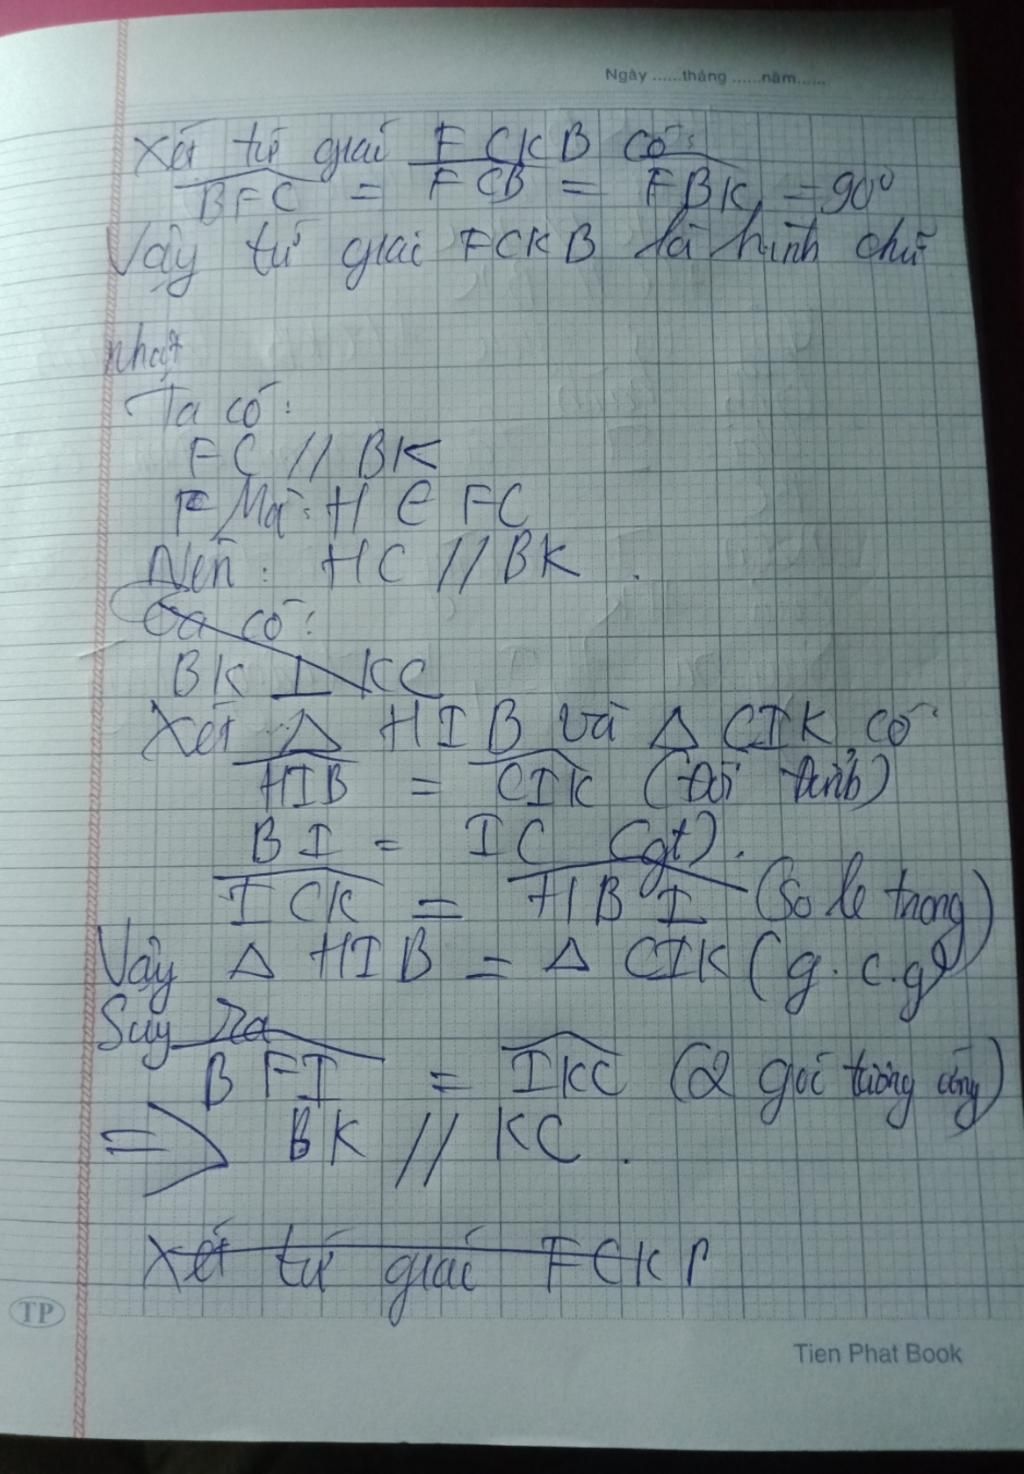 Ngày ......tháng ......năm......
Xét tứ giái FCKB có:
BFC = FCB = FBK = 90°
Vậy tứ giái FCKB là hình chữ
nhật
Ta có:
FC // BK
F Mà: H ∈ FC
Nên: HC // BK .
Ta có:
BK ⊥ KC
Xét Δ HIB và Δ CIK có
HIB = CIK (Đối đỉnh)
BI = IC (gt).
ICK = HBI (So le trong)
Vậy Δ HIB = Δ CIK (g.c.g)
Suy Ra
BFI = IKC (2 goi tương ứng)
=> BK // KC .
Xét tứ giái FCK
TP
Tien Phat Book